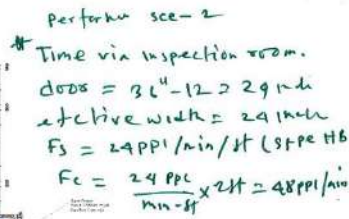 performance sce-2
# Time via inspection room.
door = 36"-12 = 24 inch
efctive width = 24 inch
Fs = 24PPl/min/ft (SFPE HB
Fc = 24 PPl / min-ft × 2ft = 48PPl/min